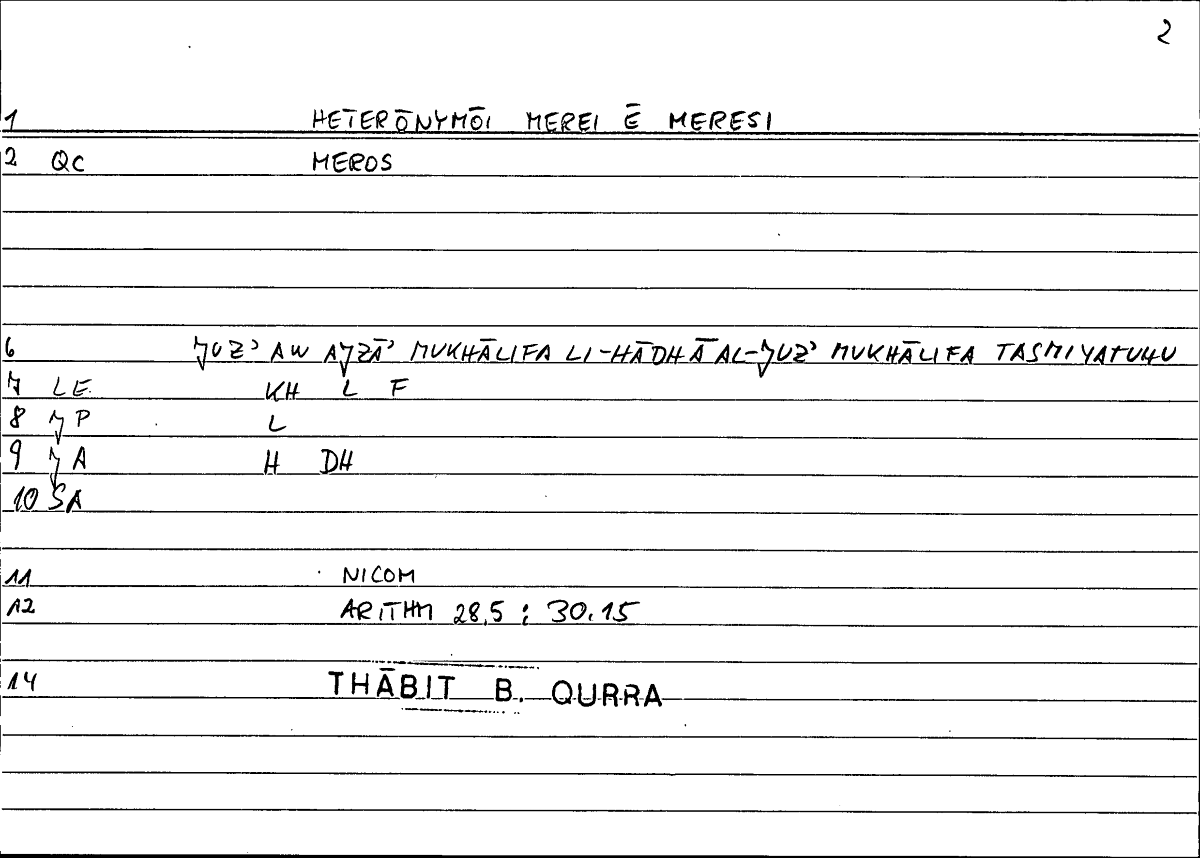 2
1 HETERŌNYMŌI MEREI Ē MERESI
2 QC MEROS
6 ǦUZʾ AW AǦZĀʾ MUKHĀLIFA LI-HĀDHĀ AL-ǦUZʾ MUKHĀLIFA TASMIYATUHU
7 LE. KH L F
8 ǦP L
9 ǦA H DH
10 SA
11 NICOM
12 ARITHM 28,5 ; 30.15
14 THĀBIT B. QURRA